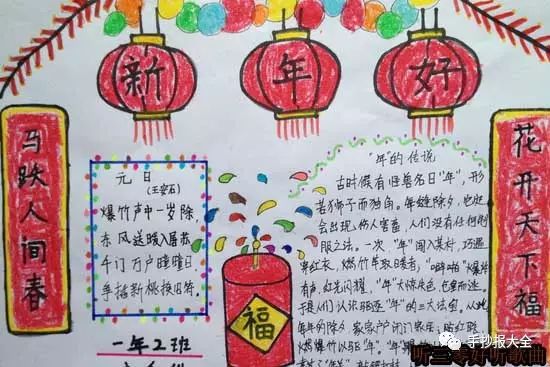 新年好
马跃人间春
花开天下福
元日
(王安石)
爆竹声中一岁除
东风送暖入屠苏
千门万户曈曈日
新桃换旧符
一年2班
福
"年"的传说
古时候有怪兽名曰"年",形
若狮子而独角。每缝除夕,
会出现伤人害畜,人们没有任何制
服之法。一次"年"闯入某村,巧遇
穿红衣,燃竹竿取暖者,"噼啪"爆炸
有声,红光闪耀,"年"大惊失色,
于是人们认识驱逐"年"的三大法宝。从此
每年的除夕 家家户 闭门 贴红联
燃爆竹以驱"年"。
手抄报大全
好听歌曲